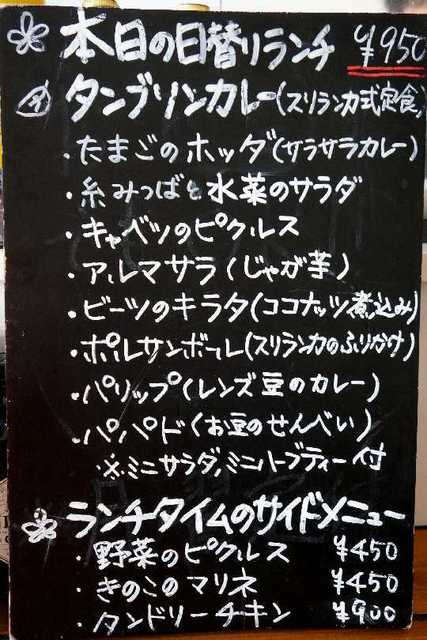 本日の日替りランチ ¥950
タンブリンカレー(スリランカ式定食)
・たまごのホッダ(サラサラカレー)
・糸みつばと水菜のサラダ
・キャベツのピクルス
・アルマサラ(じゃが芋)
・ビーツのキラタ(ココナッツ煮込み)
・ポルサンボール(スリランカのふりかけ)
・パリップ(レンズ豆のカレー)
・パパド(お豆のせんべい)
※ミニサラダ,ミニハーブティー付
ランチタイムのサイドメニュー
・野菜のピクルス ¥450
・きのこのマリネ ¥450
・タンドリーチキン ¥900